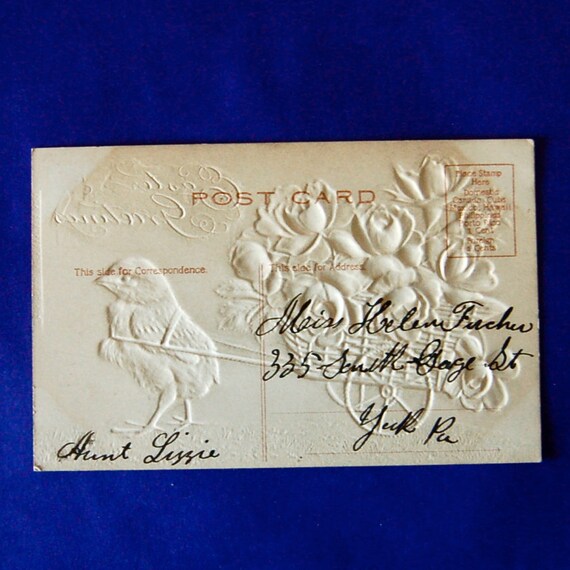 Easter
Greetings
POST CARD
Place Stamp
Here
Domestic
This side for Correspondence.
This side for Address.
Miss Helen Fischer
335 South George St
York Pa
Aunt Lizzie